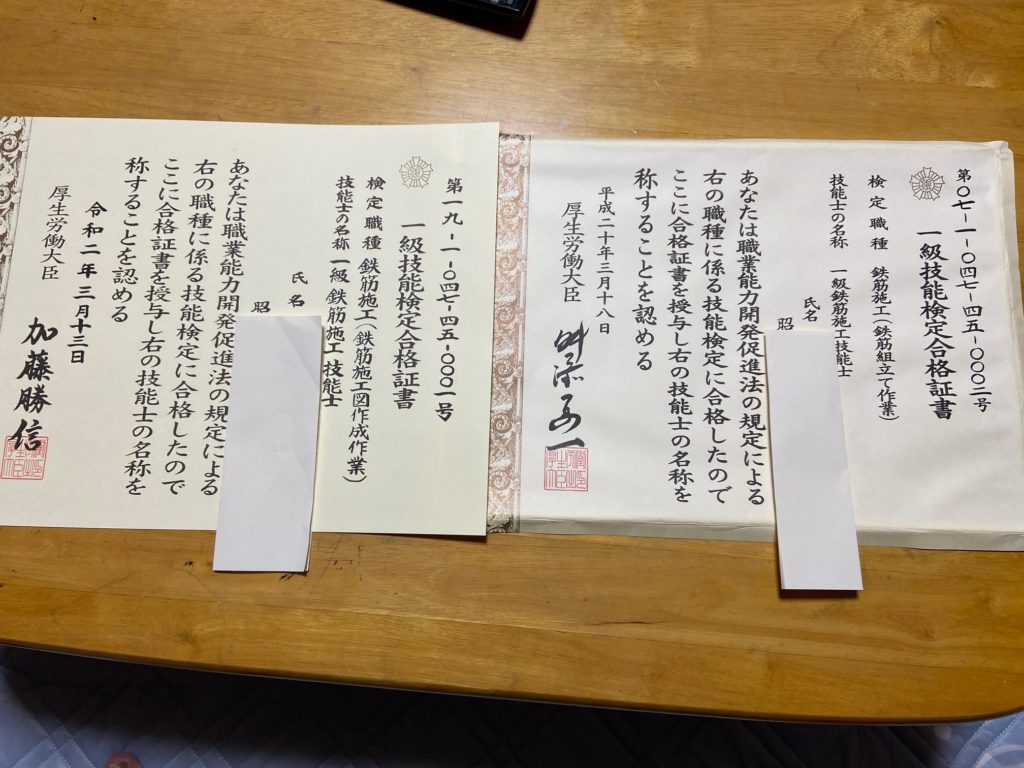 第〇七-一-〇四七-四五-〇〇〇二号
一級技能検定合格証書
検定職種 鉄筋施工(鉄筋組立て作業)
技能士の名称 一級鉄筋施工技能士
氏名
昭
あなたは職業能力開発促進法の規定による
右の職種に係る技能検定に合格したので
ここに合格証書を授与し右の技能士の名称を
称することを認める
平成二十年三月十八日
厚生労働大臣 舛添要一
第一九-一-〇四七-四五-〇〇〇一号
一級技能検定合格証書
検定職種 鉄筋施工(鉄筋施工図作成作業)
技能士の名称 一級鉄筋施工技能士
氏名
昭
あなたは職業能力開発促進法の規定による
右の職種に係る技能検定に合格したので
ここに合格証書を授与し右の技能士の名称を
称することを認める
令和二年三月十三日
厚生労働大臣 加藤勝信